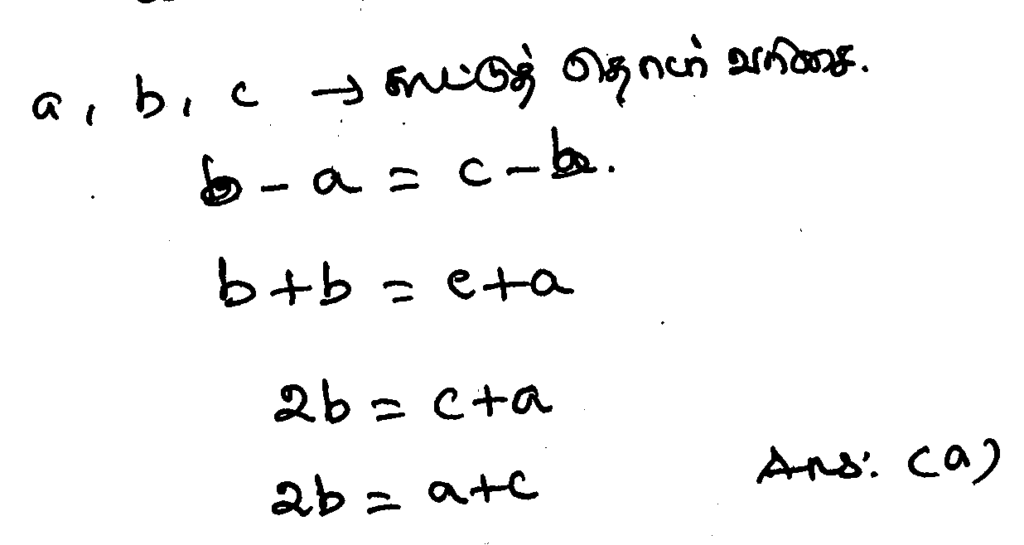 a, b, c → கூட்டுத் தொடர் வரிசை.
b - a = c - b.
b + b = c + a
2b = c + a
2b = a + c
Ans: (a)